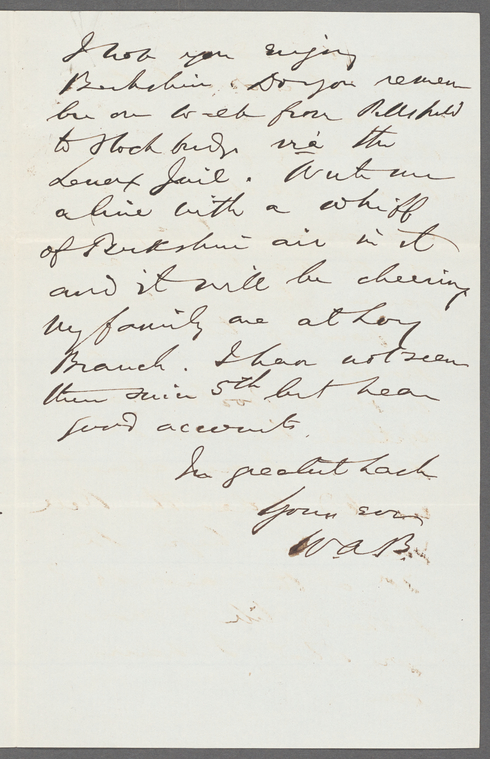 I hope you enjoy
Berkshire. Do you remem
ber our walk from Pittsfield
to Stockbridge via the
Lenox Jail. Write me
a line with a whiff
of Berkshire air in it
and it will be cheering
My family are at Long
Branch. I have not seen
them since 5th but hear
good accounts.
In greatest haste
Yours ever
W.A.B.